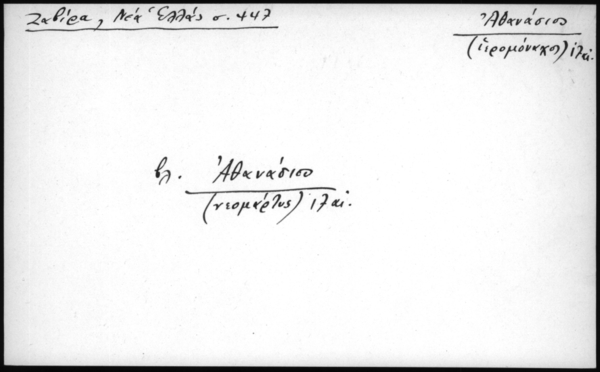 Ζαβίρα, Νέα Ἑλλάς σ. 447
Ἀθανάσιος
(ἱερομόναχος) ιζ αἰ.
βλ. Ἀθανάσιος
(νεομάρτυς) ιζ αἰ.